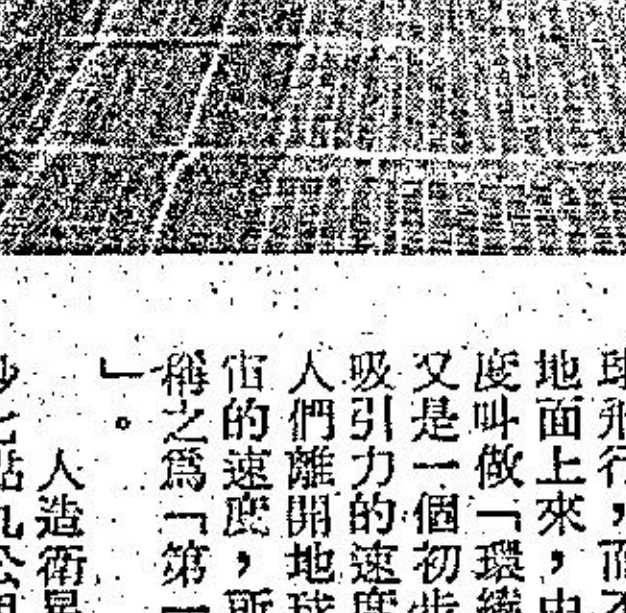 球飛行，而不
地面上來，由
度叫做「環繞
又是一個初步
吸引力的速度
人們離開地球
宙的速度，所
稱之爲「第一
」。
人造衛星
秒七點九公里